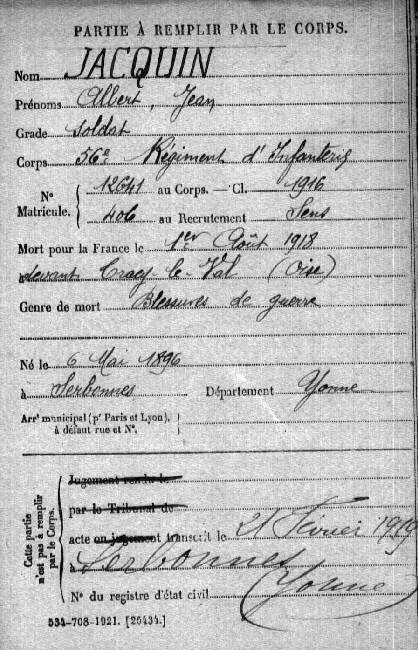 PARTIE À REMPLIR PAR LE CORPS.
Nom JACQUIN
Prénoms Albert, Jean
Grade soldat
Corps 56e Régiment d'Infanterie
Nº Matricule. 12641 au Corps. — Cl. 1916
406 au Recrutement Sens
Mort pour la France le 1er Août 1918
devant Cracy-le-Val (Oise)
Genre de mort Blessures de guerre
Né le 6 Mai 1896
à Serbonnes Département Yonne
Arrt municipal (pr Paris et Lyon),
à défaut rue et Nº.
Cette partie n'est pas à remplir par le Corps.
Jugement rendu le
par le Tribunal de
acte ou jugement transcrit le 21 Février 1919
à Serbonnes
Yonne
Nº du registre d'état civil
534-708-1921. [26434.]